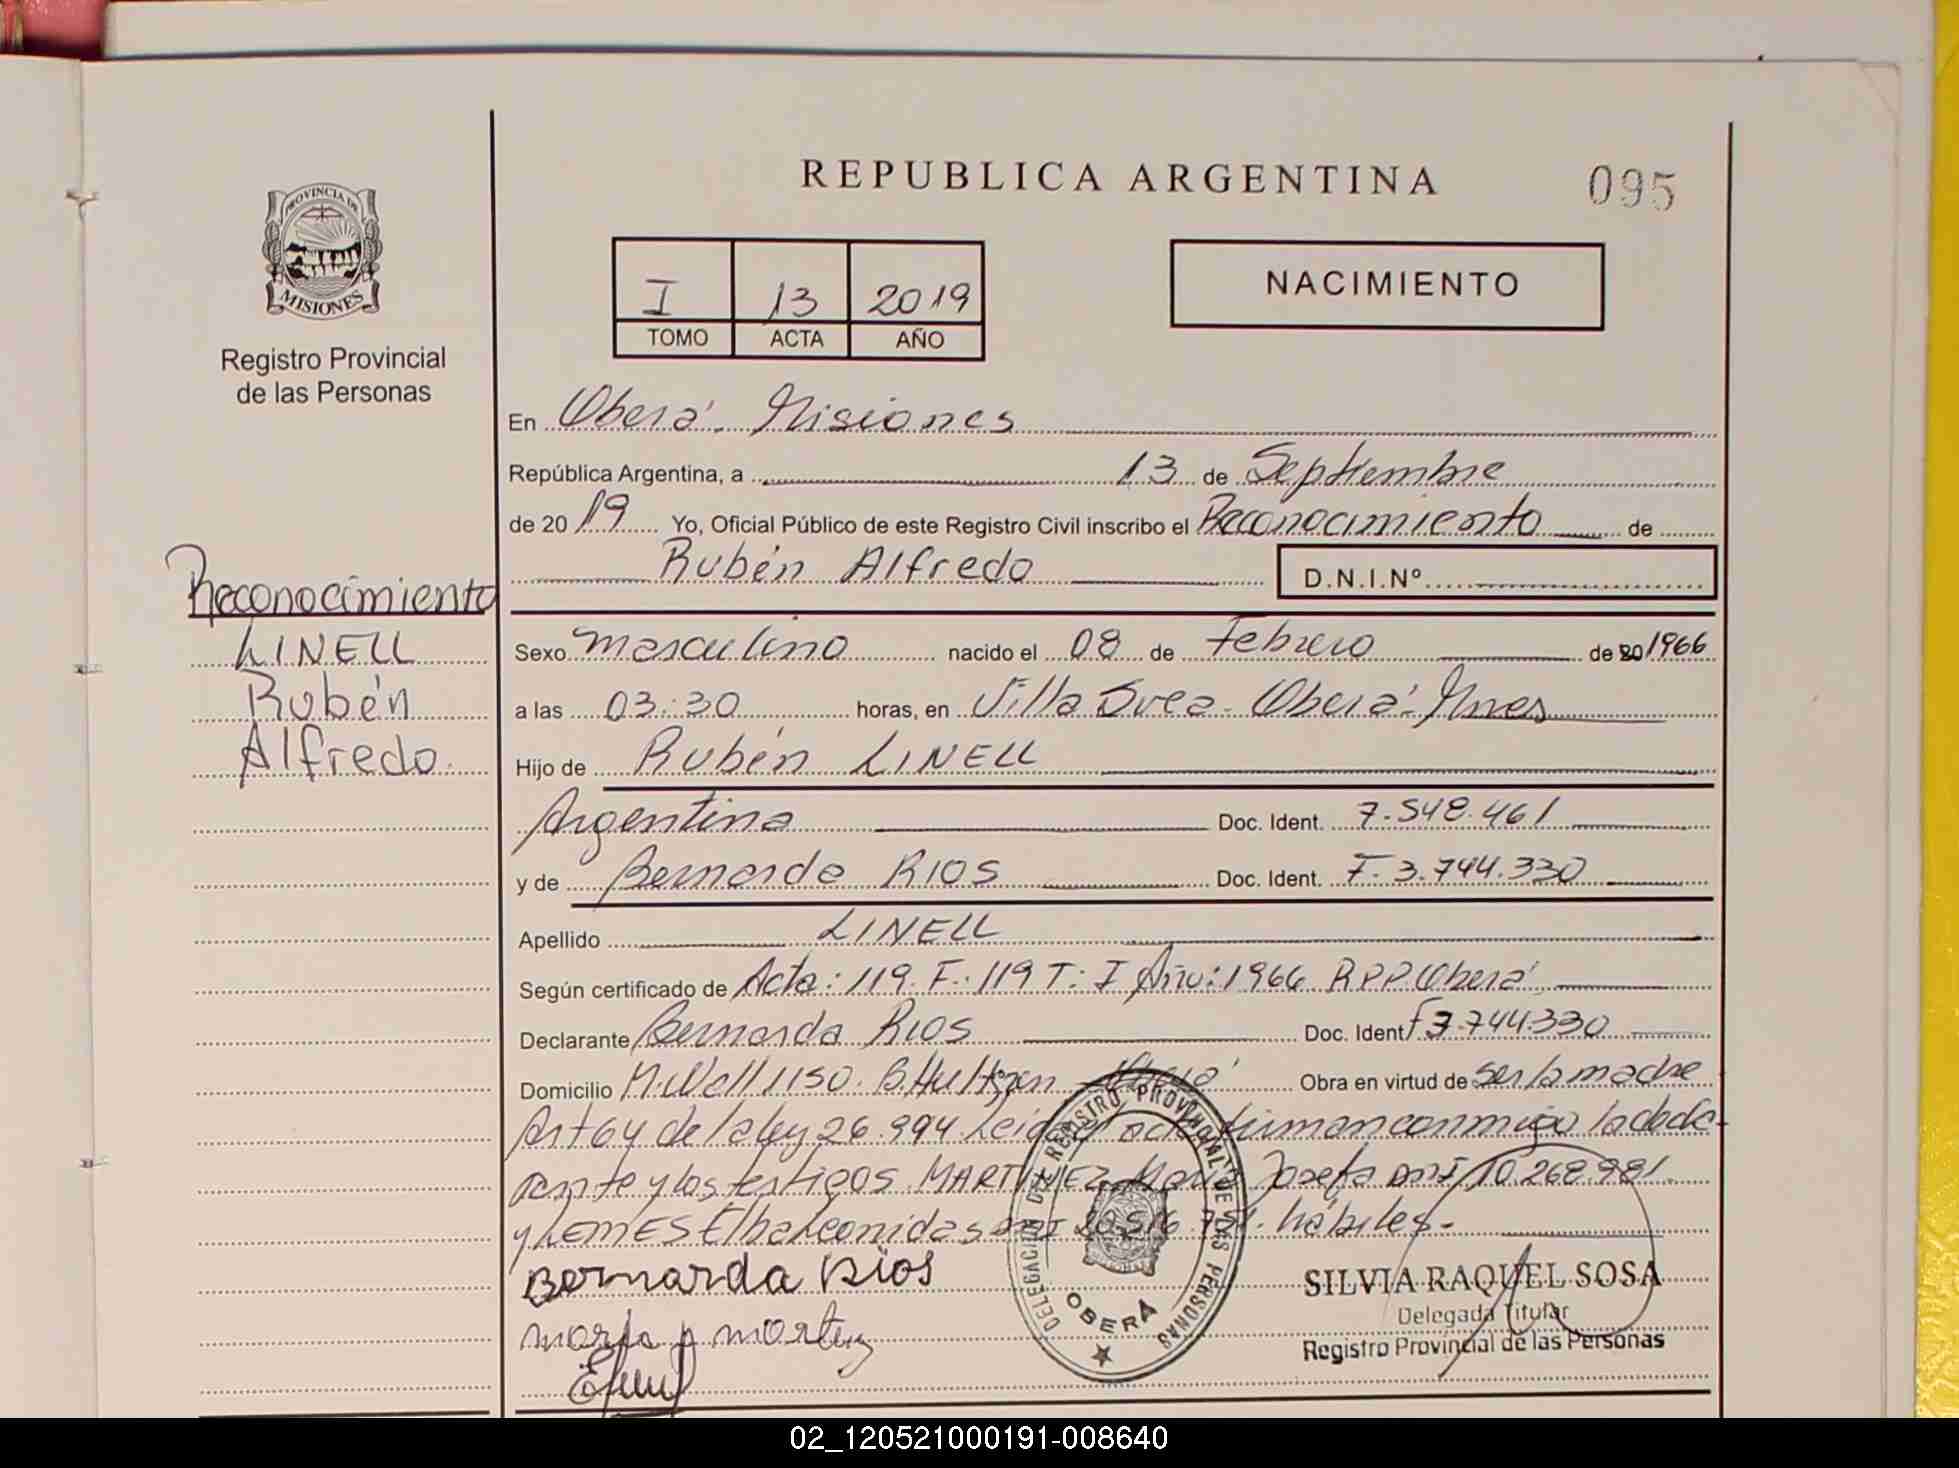 REPUBLICA ARGENTINA
095
PROVINCIA DE
MISIONES
Registro Provincial
de las Personas
I 13 2019
TOMO ACTA AÑO
NACIMIENTO
En Oberá. Misiones
República Argentina, a 13 de Septiembre
de 20 19 Yo, Oficial Público de este Registro Civil inscribo el Reconocimiento de
Rubén Alfredo D.N.I.Nº
Reconocimiento
LINELL
Rubén
Alfredo.
Sexo masculino nacido el 08 de Febrero de 20 1966
a las 03:30 horas, en Villa Svea - Oberá - Mnes
Hijo de Rubén LINELL
Argentina Doc. Ident. 7.548.461
y de Bernarda RIOS Doc. Ident. F. 3.744.330
Apellido LINELL
Según certificado de Acta: 119. F: 119 T: I Año: 1966 RPP Oberá
Declarante Bernarda RIOS Doc. Ident F 3.744.330
Domicilio 1150. B. Hultgren - Oberá Obra en virtud de ser la madre
Art 64 de la ley 26.994 Leida el acta firman conmigo la decla-
rante y los testigos MARTINEZ María Josefa DNI 10.268.981
y LEMES Elba Leonidas DNI 20.516.751. hábiles.-
Bernarda Rios
SILVIA RAQUEL SOSA
Delegada Titular
Registro Provincial de las Personas
DELEGACION DEL REGISTRO PROVINCIAL DE LAS PERSONAS
OBERA
02_120521000191-008640